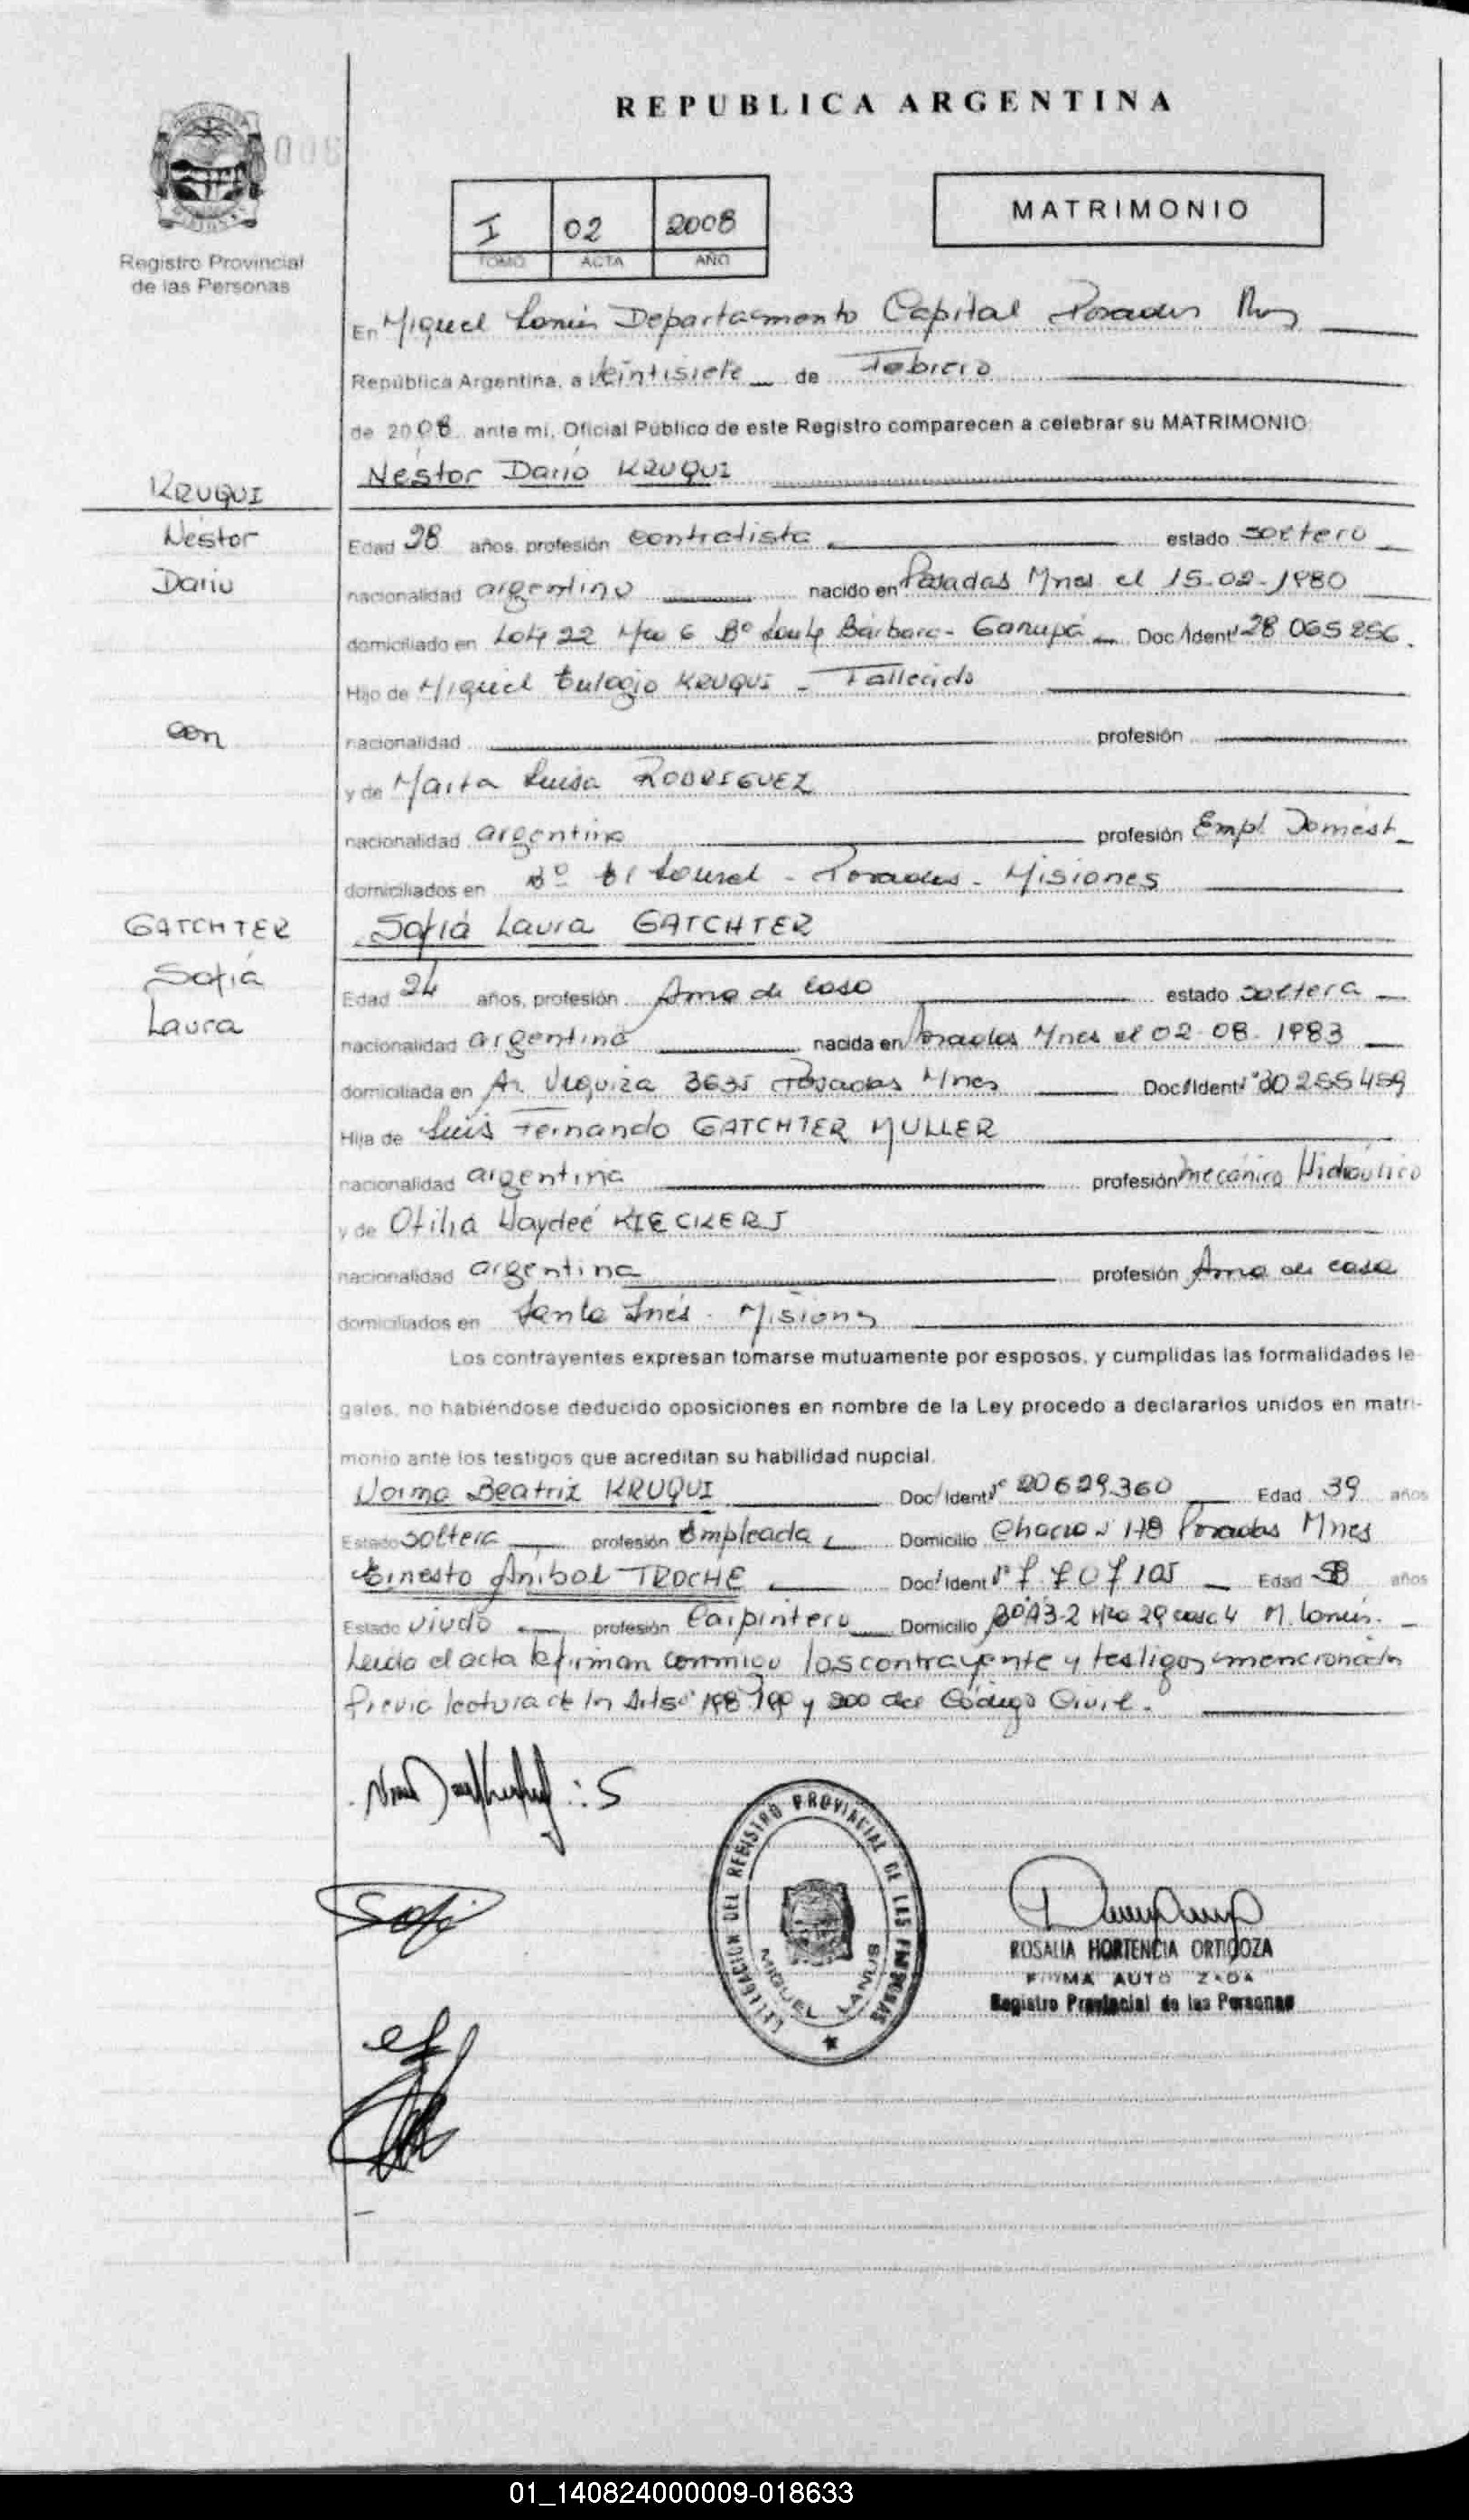 REPUBLICA ARGENTINA
006
I 02 2008
TOMO ACTA AÑO
MATRIMONIO
Registro Provincial
de las Personas
En Miguel Lanús Departamento Capital Posadas Mnes
República Argentina, a Veintisiete de Febrero
de 2008 ante mi, Oficial Público de este Registro comparecen a celebrar su MATRIMONIO:
KRUQUI
Néstor Darío KRUQUI
Néstor
Edad 28 años, profesión contratista estado soltero
Darío
nacionalidad argentino nacido en Posadas Mnes el 15-02-1980
domiciliado en Lote 22 Mza 6 Bº Santa Bárbara - Garupá Doc/Ident Nº 28 065 256
Hijo de Miguel Eulogio KRUQUI - Fallecido
con
nacionalidad profesión
y de Marta Luisa RODRIGUEZ
nacionalidad argentina profesión Empl Domést
domiciliados en Bº El Laurel - Posadas - Misiones
GATCHTER
Sofiá Laura GATCHTER
Sofiá
Edad 24 años, profesión Ama de casa estado soltera
Laura
nacionalidad argentina nacida en Posadas Mnes el 02-08-1983
domiciliada en Av. Urquiza 3635 Posadas Mnes Doc/Ident Nº 30 255 459
Hija de Luis Fernando GATCHTER MULLER
nacionalidad argentina profesión mecánico Hidráulico
y de Otilia Haydeé KIECKERT
nacionalidad argentina profesión Ama de casa
domiciliados en Santa Inés - Misiones
Los contrayentes expresan tomarse mutuamente por esposos, y cumplidas las formalidades le-
gales, no habiéndose deducido oposiciones en nombre de la Ley procedo a declararlos unidos en matri-
monio ante los testigos que acreditan su habilidad nupcial.
Norma Beatriz KRUQUI Doc/Ident Nº 20629.360 Edad 39 años
Estado soltera profesión Empleada Domicilio Chacra Nº 178 Posadas Mnes
Ernesto Aníbal TROCHE Doc/Ident Nº 7.707105 Edad 58 años
Estado viudo profesión Carpintero Domicilio Bº A3-2 Mza 29 casa 4 M. Lanús.
Leída el acta la firman conmigo los contrayente y testigos mencionados
Previa lectura de los Artsº 198 199 y 200 del Código Civil.
Sofi
DELEGACION DEL REGISTRO PROVINCIAL DE LAS PERSONAS
MIGUEL LANUS
ROSALIA HORTENCIA ORTIGOZA
FIRMA AUTORIZADA
Registro Provincial de las Personas
01_140824000009-018633